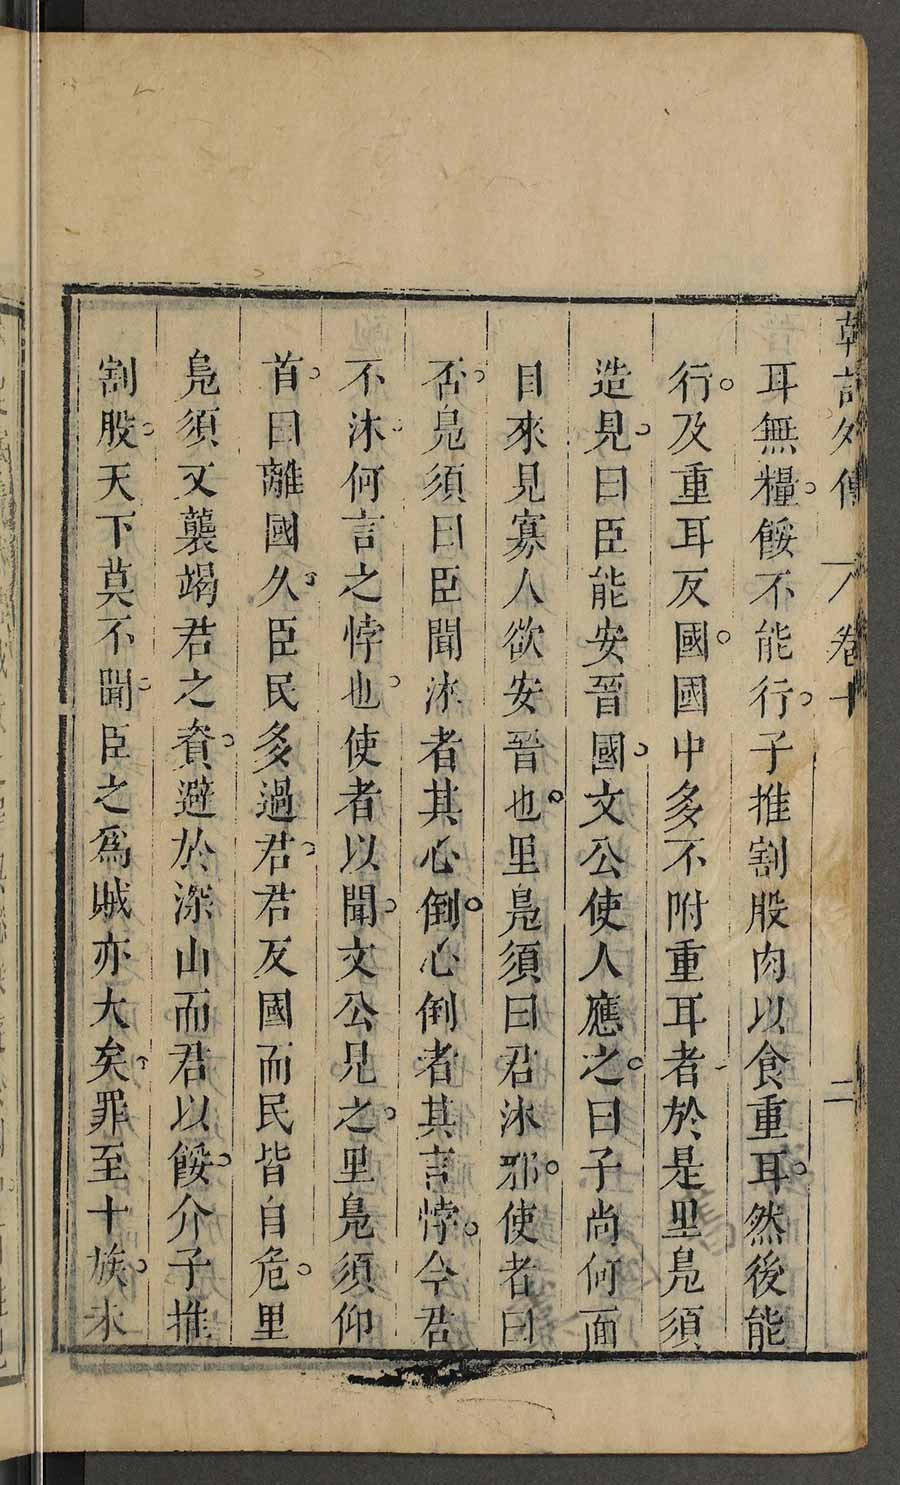 韓詩外傳 卷十 二
耳無糧。餒不能行。子推割股肉以食重耳。然後能
行。及重耳反國。國中多不附重耳者。於是里鳧須
造見。曰臣能安晉國。文公使人應之。曰子尚何面
目來見寡人欲安晉也。里鳧須曰君沐邪。使者曰
否。鳧須曰臣聞沐者其心倒。心倒者其言悖。今君
不沐。何言之悖也。使者以聞。文公見之。里鳧須仰
首。曰離國久。臣民多過君。君反國而民皆自危。里
鳧須又襲竭君之資。避於深山而君以餒。介子推
割股。天下莫不聞。臣之爲賊亦大矣。罪至十族。未